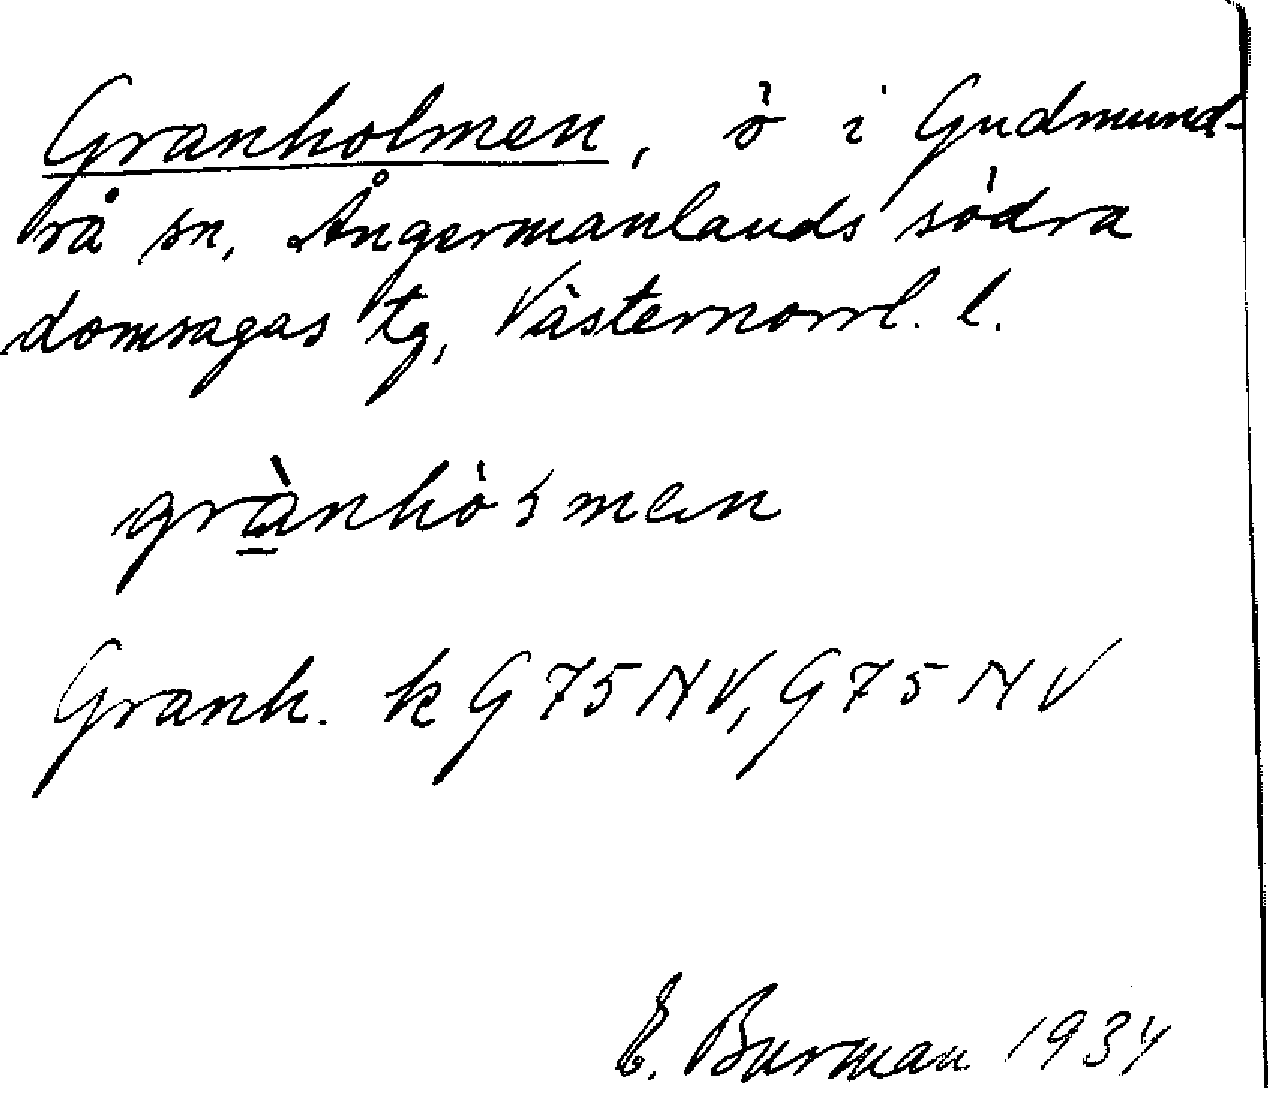 Granholmen, ö i Gudmund-
rå sn, Ångermanlands södra
domsagas tg, Västernorrl. l.
grànhòsmen
Granh. k G75NV, G75NV
E. Burman 1934